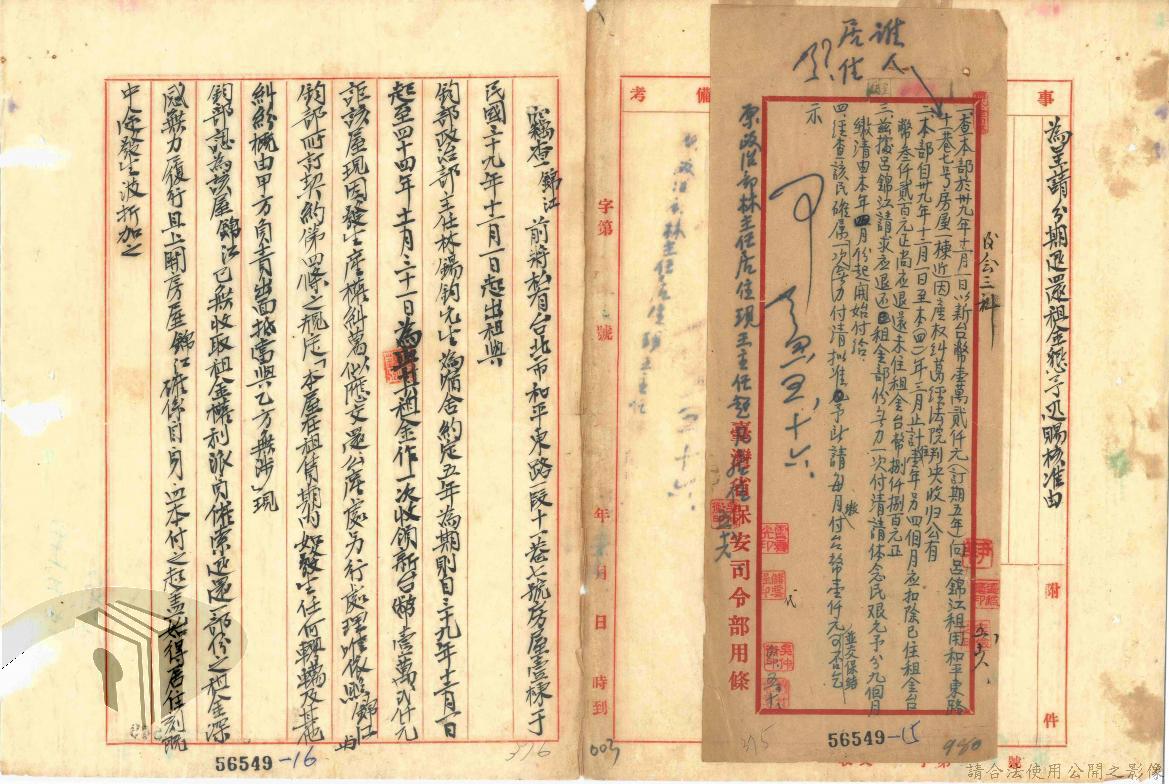 事
附
件
為呈請分期退還租金懇予迅賜核准由
誰人
居住
一查本部於卅九年十一月一日以新台幣壹萬貳仟元(訂期五年)向呂錦江租用和平東路
十一巷七号房屋一棟近因產权糾葛經法院判决收归公有
二本部自卅九年十一月一日至本(四二)年三月止計壹年另四個月應扣除已住租金台
幣叁仟貳百元正尚应退還未住租金台幣捌仟捌百元正
三茲據呂錦江請求应退还租金部份無力一次付清請体念民艱允予分九個月
繳清由本年四月份起開始付給
四經查該民確属一次無力付清拟准予所請每月繳付台幣壹仟元並交保結可否乞
示
可
原政治部林主任居住現王主任超凡
臺灣省保安司令部用條
56549-15
315
980
備考
字第
號
年
月
日
時到
003
竊查錦江前將私有台北市和平東路一段十一巷七號房屋壹棟于
民國三十九年十一月一日起出租與
鈞部政治部主任林錫鈞先生為宿舍約定五年為期則自三十九年十一月一日
起至四十四年十月三十一日為期其租金作一次收領新台幣壹萬貳仟元
詎該屋現因發生產權糾葛似應交還公產處另行處理惟依照錦江与
鈞部所訂契約第四條之規定「本屋在租賃期內如發生任何轇轕及其他
糾紛概由甲方負責出面抵當與乙方無涉」現
鈞部認為該屋錦江已無收取租金權利派員催索退還一部份之租金深
感無力履行且上開房屋錦江確係自身血本付之起蓋始得居住刻既
中途發生波折加之
56549-16
316
請合法使用公開之影像